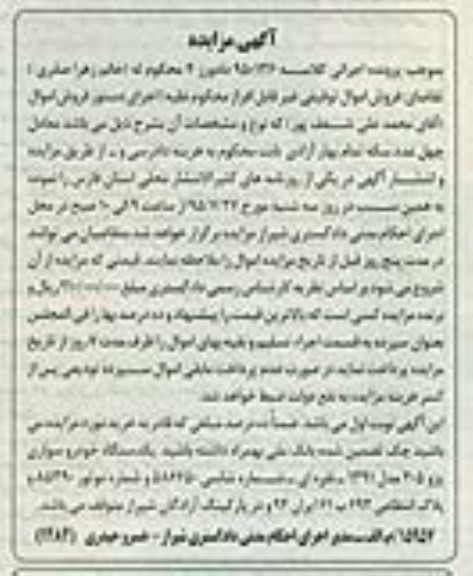 آگهی مزایده
بموجب پرونده اجرائی کلاسه ۹۵۰۱۳۶ مادورز ۲ محکوم له (خانم زهرا صفری)
تقاضای فروش اموال توقیفی غیر قابل افراز محکوم علیه اجرای دستور فروش اموال
(آقای محمد علی پور) که نوع و مشخصات آن بشرح ذیل می باشد معادل
چهل عدد سکه تمام بهار آزادی بابت محکوم به هزینه دادرسی و .. از طریق مزایده
و انتشار آگهی در یکی از روزنامه های کثیرالانتشار محلی استان فارس را نموده
به همین نسبت در روز سه شنبه مورخ ۹۵/۷/۲۷ از ساعت ۹ الی ۱۰ صبح در محل
اجرای احکام مدنی دادگستری شیراز مزایده برگزار خواهد شد متقاضیان می توانند
در مدت پنج روز قبل از تاریخ مزایده اموال را ملاحظه نمایند. قیمتی که مزایده از آن
شروع می شود بر اساس نظریه کارشناس رسمی دادگستری مبلغ ریال و
برنده مزایده کسی است که بالاترین قیمت را پیشنهاد و ده درصد بها را فی المجلس
بعنوان سپرده به قسمت اجراء تسلیم و بقیه بهای اموال را ظرف مدت روز از تاریخ
مزایده پرداخت نماید در صورت عدم پرداخت مابقی اموال سپرده تودیعی پس از
کسر هزینه مزایده به نفع دولت ضبط خواهد شد.
این آگهی نوبت اول می باشد. ضمناً ده درصد مبلغی که قادر به خرید مورد مزایده می
باشید چک تضمین شده بانک ملی بهمراه داشته باشید. یکدستگاه خودرو سواری
پژو ۴۰۵ مدل ۱۳۹۱ - نقره ای - شماره شاسی ۵۸۶۲۵۰ و شماره موتور ۸۵۳۹۰ و
پلاک انتظامی ۶۹۳ ب ۶۱ ایران ۹۳ و در پارکینگ آزادگان شیراز متوقف می باشد.
۱۵۹۵۷/م الف - مدیر اجرای احکام مدنی دادگستری شیراز - خسرو حیدری (۱۲۸۲)